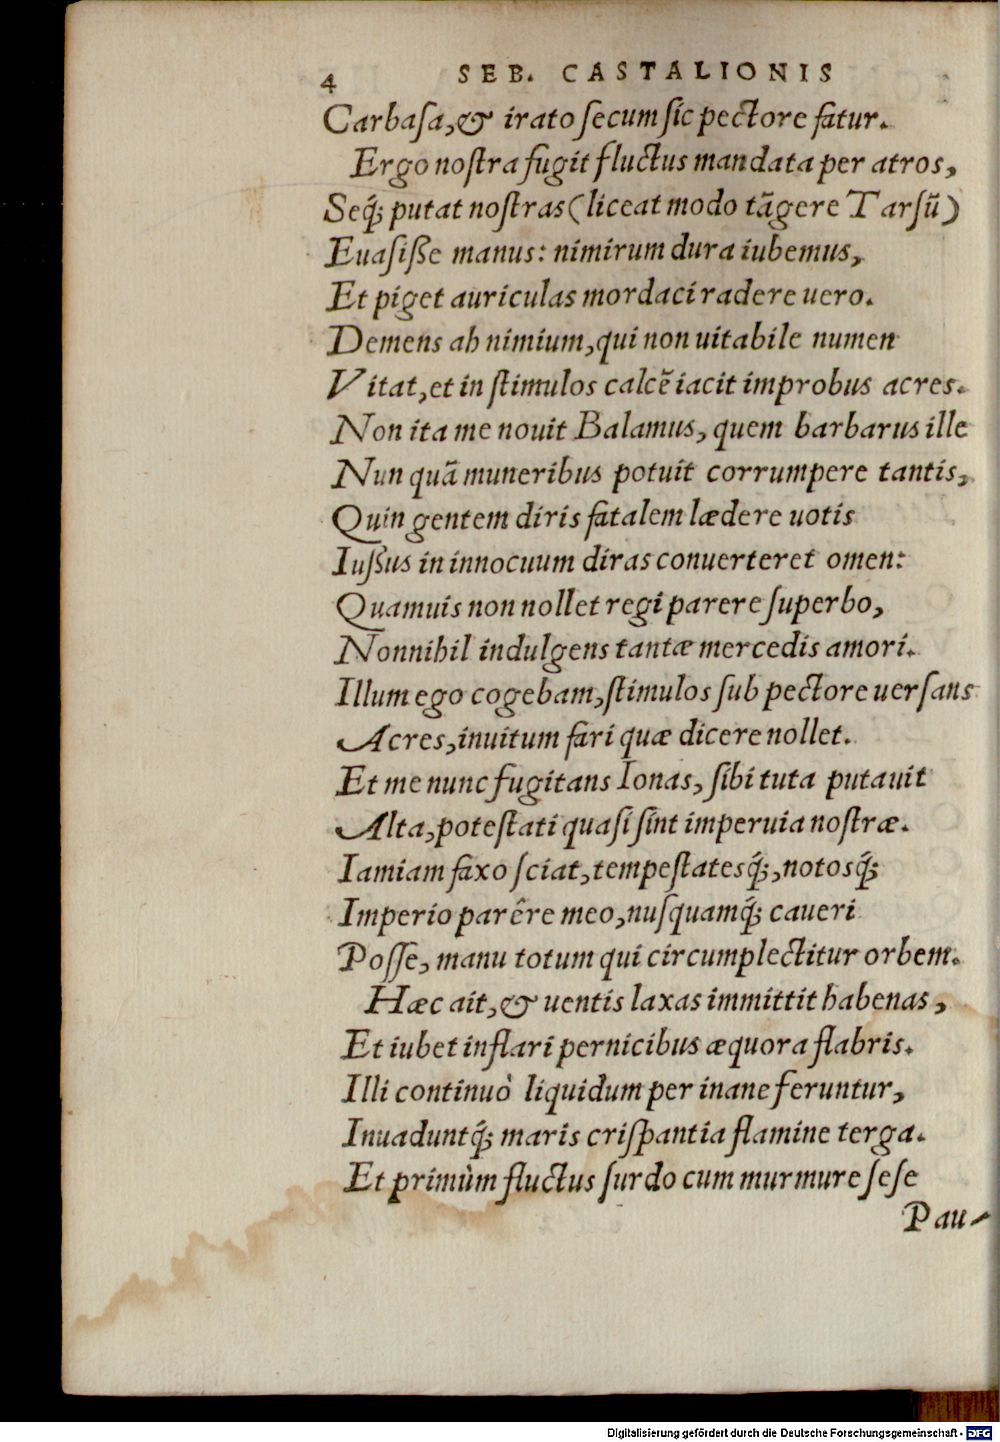 4 SEB. CASTALIONIS
Carbaſa, & irato ſecum ſic pectore fatur.
Ergo noſtra fugit fluctus mandata per atros,
Seq́; putat noſtras (liceat modo tãgere Tarſũ)
Euaſiſſe manus: nimirum dura iubemus,
Et piget auriculas mordaci radere uero.
Demens ah nimium, qui non uitabile numen
Vitat, et in ſtimulos calcẽ iacit improbus acres.
Non ita me nouit Balamus, quem barbarus ille
Nun quã muneribus potuit corrumpere tantis,
Quin gentem diris fatalem lædere uotis
Iuſſus in innocuum diras conuerteret omen:
Quamuis non nollet regi parere ſuperbo,
Nonnihil indulgens tantæ mercedis amori.
Illum ego cogebam, ſtimulos ſub pectore uerſans
Acres, inuitum fari quæ dicere nollet.
Et me nunc fugitans Ionas, ſibi tuta putauit
Alta, poteſtati quaſi ſint imperuia noſtræ.
Iamiam faxo ſciat, tempeſtatesq́;, notosq́;
Imperio parêre meo, nuſquamq́; caueri
Poſſe, manu totum qui circumplectitur orbem.
Hæc ait, & uentis laxas immittit habenas,
Et iubet inflari pernicibus æquora flabris.
Illi continuò liquidum per inane feruntur,
Inuaduntq́; maris criſpantia flamine terga.
Et primùm fluctus ſurdo cum murmure ſeſe
Pau-
Digitalisierung gefördert durch die Deutsche Forschungsgemeinschaft - DFG